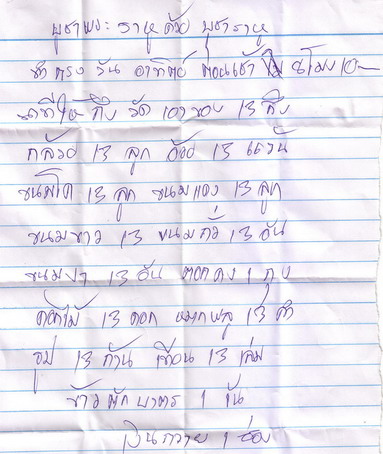 บูชาพระ ราหูด้วย บูชาราหู
ทำตรง วัน อาทิตย์ ตอนเช้า โมง 10
นาทีให้ ถึง วัด เอาของ 13 สิ่ง
กล้วย 13 ลูก อ้อย 13
ขนมโค 13 ลูก ขนมแดง 13 ลูก
ขนมขาว 13 ขนมถั่ว 13 อัน
ขนมงา 13 อัน ดอก 1
ดอกไม้ 13 ดอก หมากพลู 13 คำ
ธูป 13 ก้าน เทียน 13 เล่ม
ข้าวตักบาตร 1 ขัน
เงินถวาย 1 ซอง